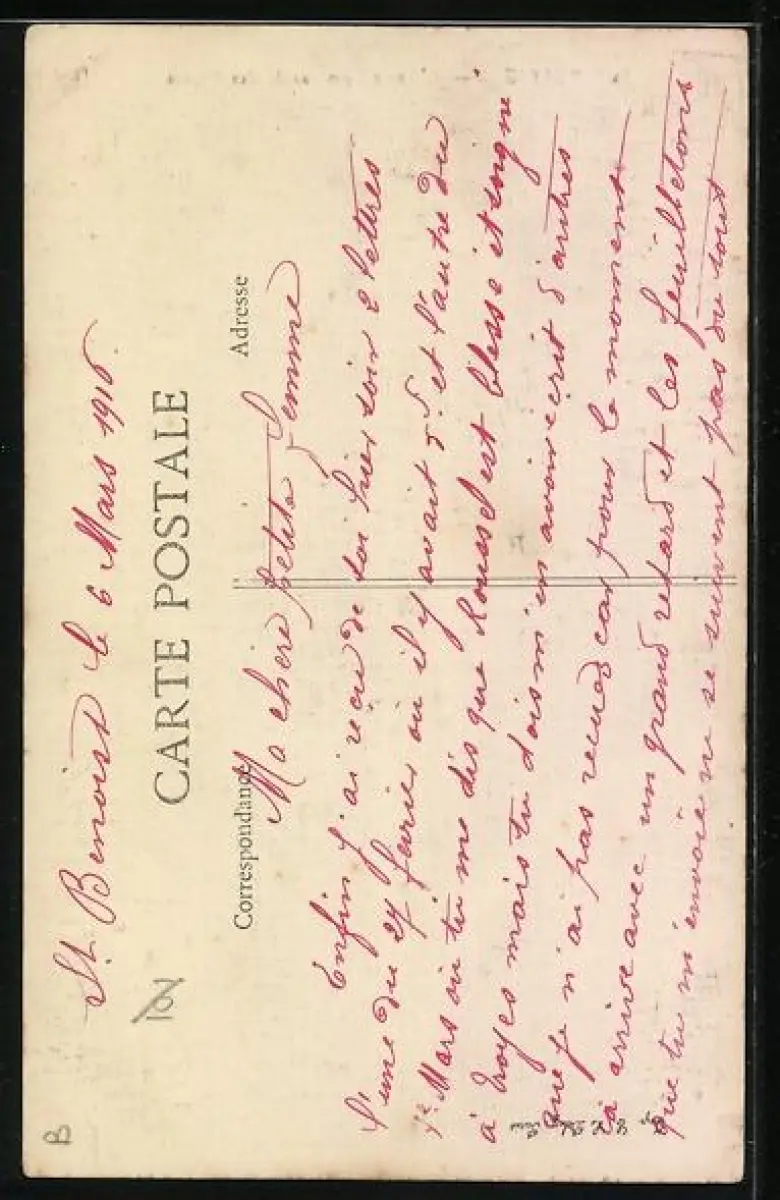 St. Benoist le 6 Mars 1916.
CARTE POSTALE
Correspondance
Adresse
Ma chère petite femme
Enfin j'ai reçu de toi hier soir 2 lettres
l'une du 27 fevrier où il y avait 5f et l'autre du
1er Mars ou tu me dis que Roussel est blessé et soigné
à Troyes mais tu dois m'en avoir écrit d'autres
que je n'ai pas reçues car pour le moment
ça arrive avec un grand retard et les feuilletons
que tu m'envoie ne se suivent pas du tout
107
B